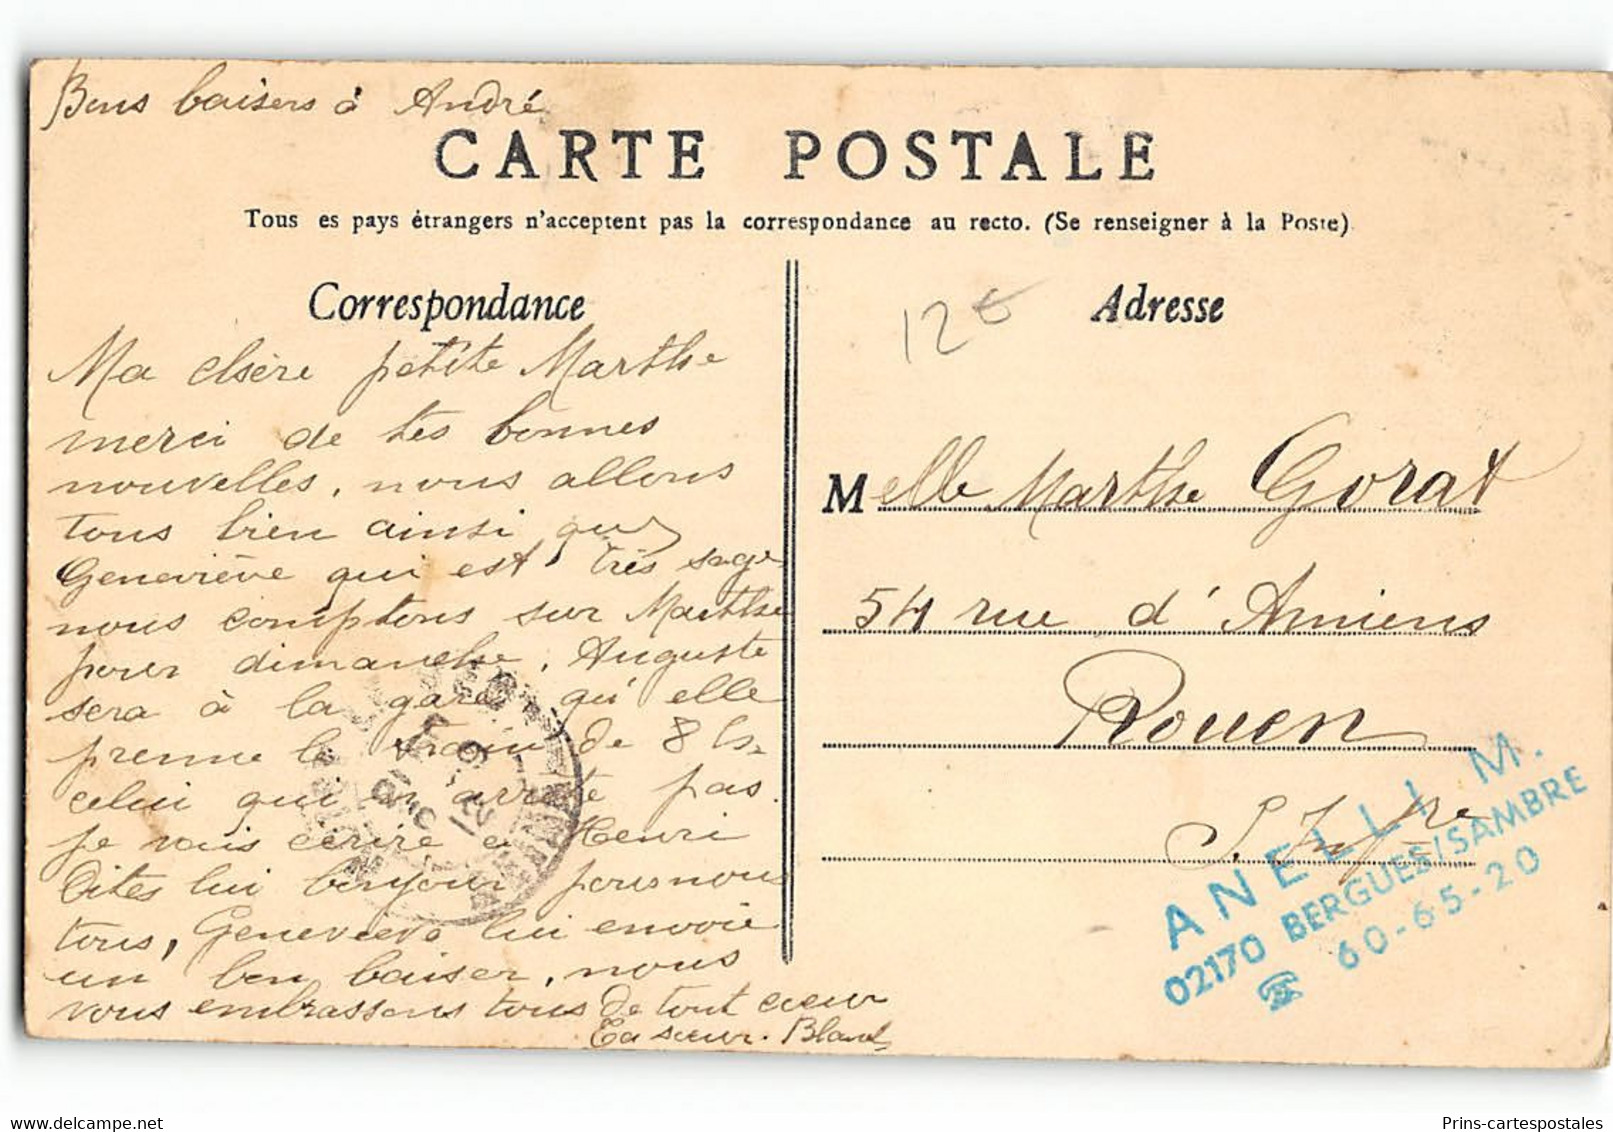 Bons baisers à André
CARTE POSTALE
Tous es pays étrangers n'acceptent pas la correspondance au recto. (Se renseigner à la Poste)
Correspondance
Ma chère petite Marthe
merci de tes bonnes
nouvelles, nous allons
tous bien ainsi que
Geneviève qui est très sage
nous comptons sur Marthe
pour dimanche, Auguste
sera à la gare qu'elle
prenne le train de 8 h.
celui qui n'arrête pas.
je vais écrire à Henri
Dites lui bonjour pour nous
tous, Geneviève lui envoie
un bon baiser, nous
vous embrassons tous de tout cœur
Ta sœur. Blanch
12€
Adresse
Melle Marthe Gorat
54 rue d'Amiens
Rouen
S. Infre
ANELLI M.
02170 BERGUES/SAMBRE
☎ 60-65-20
Prins-cartespostales